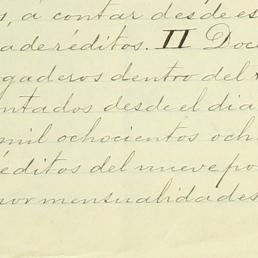 s, á contar desde es
ader éditos. II Doce
gaderos dentro del
ntados desde el dia
mil ochocientos och
éditos del nueve po
por mensualidades